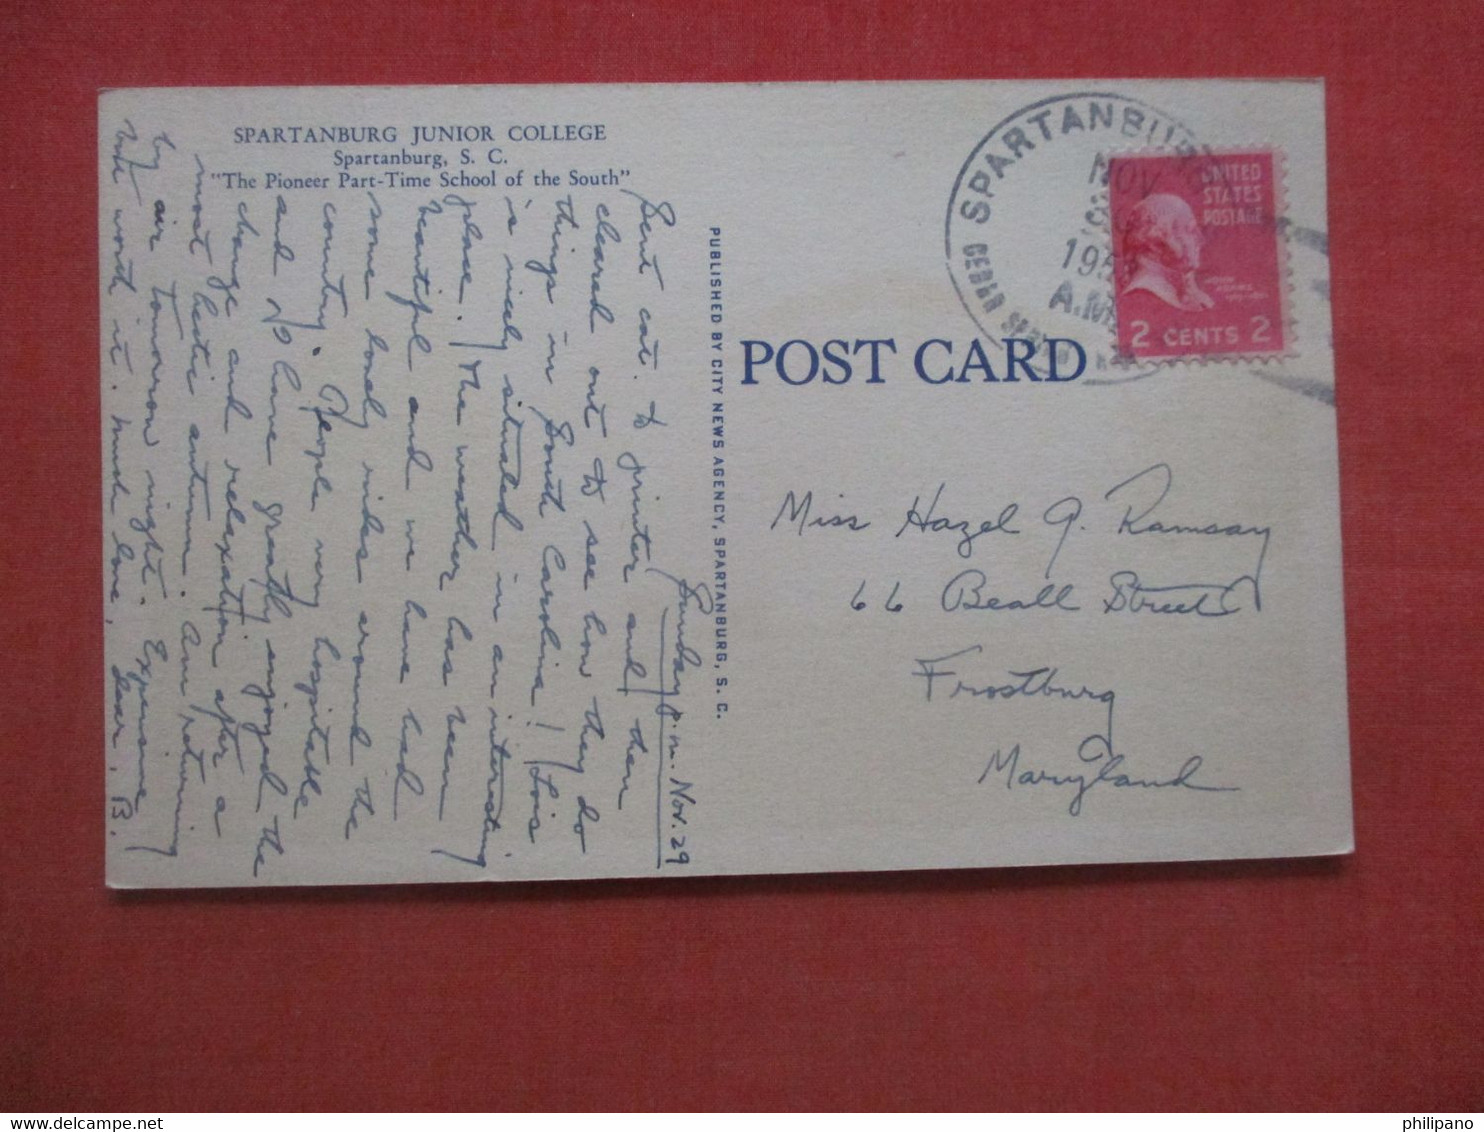 SPARTANBURG JUNIOR COLLEGE
Spartanburg, S. C.
"The Pioneer Part-Time School of the South"
Sunday p.m. Nov. 29
Sent cat. to printer and then
cleared out to see how they do
things in South Carolina! Lois
is nicely situated in an interesting
place. The weather has been
beautiful and we have had
some lovely rides around the
country. People very hospitable
and I have greatly enjoyed the
change and relaxation after a
most hectic autumn. Am returning
by air tomorrow night. Expensive
but worth it. Much love, Dear, B.
PUBLISHED BY CITY NEWS AGENCY, SPARTANBURG, S. C.
POST CARD
SPARTANBURG
NOV
A.M.
UNITED
STATES
POSTAGE
2 CENTS 2
Miss Hazel G. Ramsay
66 Beall Street
Frostburg
Maryland
www.delcampe.net
philipano